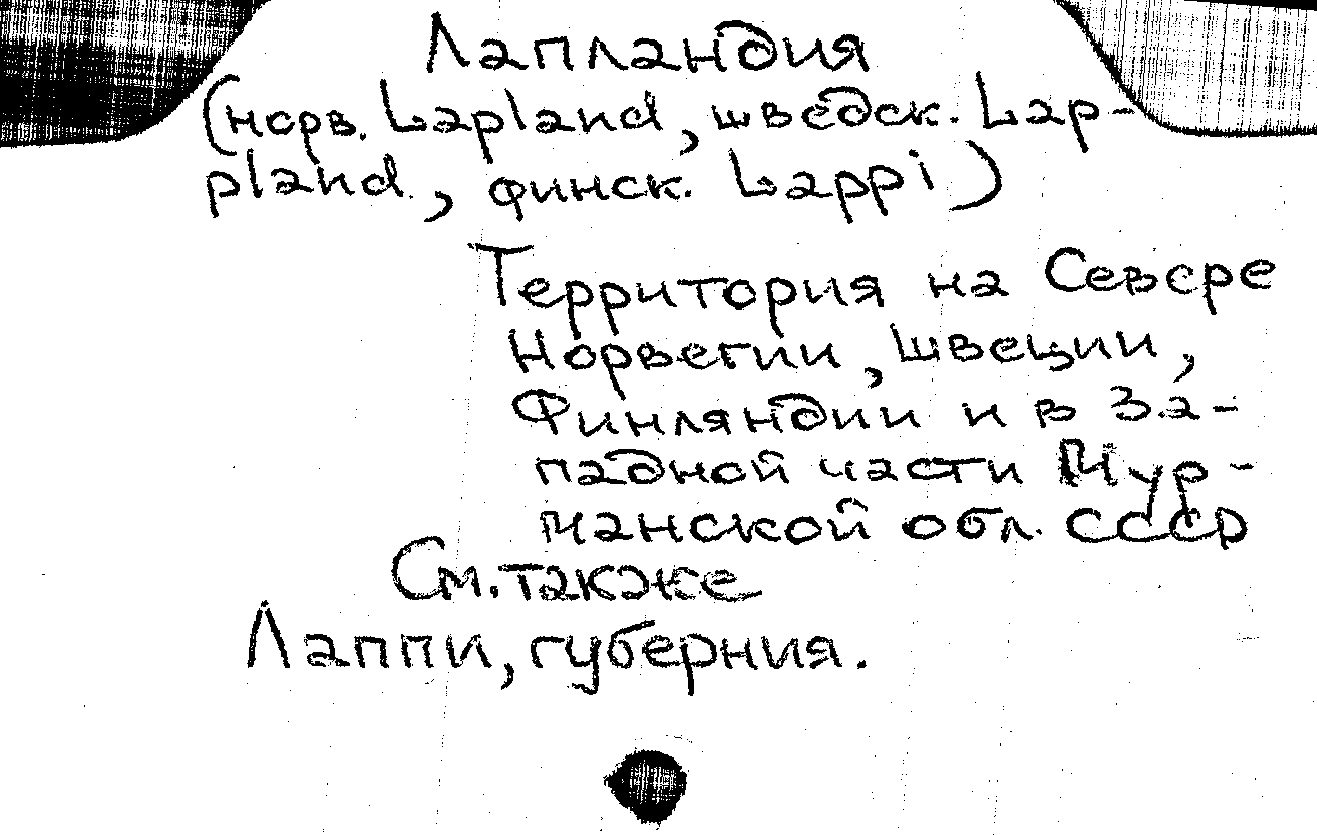 Лапландия
(норв. Lapland, шведск. Lap-
pland, финск. Lappi)
Территория на Севере
Норвегии, Швеции,
Финляндии и в За-
падной части Мур-
манской обл. СССР
См. также
Лаппи, губерния.